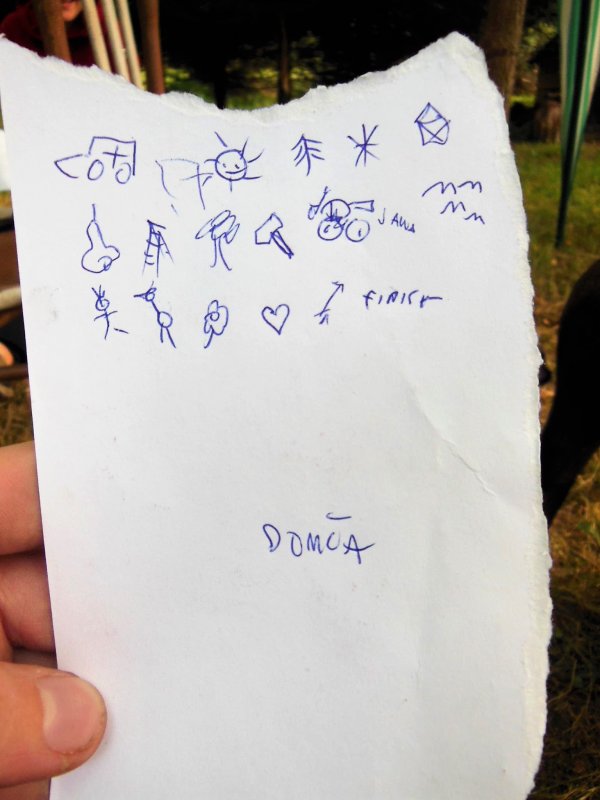 JAWA
FINISH
DOMČA